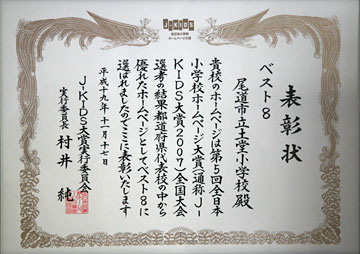 J-KIDS
全日本小学校
ホームページ大賞
表彰状
ベスト8
尾道市立土堂小学校 殿
貴校のホームページは第5回全日本
小学校ホームページ大賞（通称J-
KIDS大賞2007）全国大会
選考の結果都道府県代表校の中から
優れたホームページとしてベスト8に
選ばれましたのでここに表彰いたします
平成十九年 十一月十七日
J-KIDS大賞実行委員会
実行委員長 村井 純